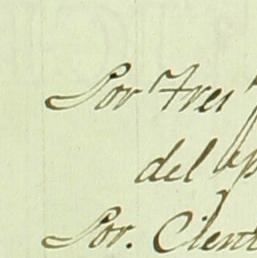 Por Tres
del ap
Por. Cient